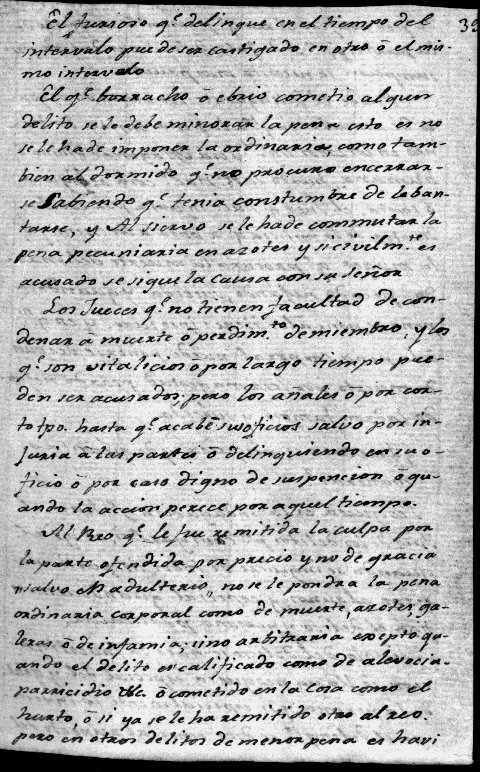 39
El furioso q.e delinque en el tiempo del
intervalo puede ser castigado en otro ō el mis-
mo intervalo
El q.e borracho ō ebrio cometio algun
delito se le debe minorar la pena esto es no
se le ha de imponer la ordinaria, como tam-
bien al dormido q.e no procuro encerrar-
se Sabiendo q.e tenia constumbre de leban-
tarse, y Al siervo se le ha de commutar la
pena pecuniaria en azotes y si civilm.te es
acusado se sigue la causa con su señor
Los Jueces q.e no tienen facultad de con-
denar ā muerte ō perdim.to de miembro, y los
q.e son vitalicios ō por largo tiempo pue-
den ser acusados; pero los añales ō por cor-
to tpo. hasta q.e acabē sus oficios salvo por in-
juria ā las partes ō delinquiendo en su o-
ficio ō por caso digno de suspencion ō qu-
ando la accion perece por aquel tiempo.
Al Reo q.e le fue remitida la culpa por
la parte ofendida por precio y no de gracia
salvo el adulterio, no se le pondra la pena
ordinaria corporal como de muerte, azotes ga-
leras ō de infamia; sino arbitraria excepto qu-
ando el delito es calificado como de alevocia-
parricidio &c. ō cometido en la cosa como el
hurto, ō si ya se le ha remitido otro al reo.
pero en otros delitos de menor pena es havi